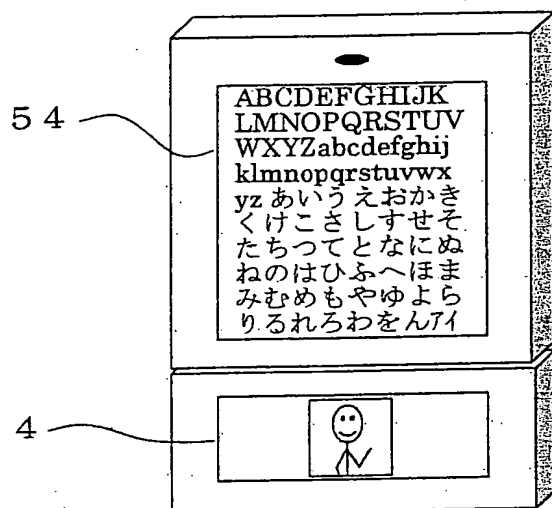 54
ABCDEFGHIJK
LMNOPQRSTUV
WXYZabcdefghij
klmnopqrstuvwx
yz あいうえおかき
くけこさしすせそ
たちつてとなにぬ
ねのはひふへほま
みむめもやゆよら
りるれろわをんアイ
4